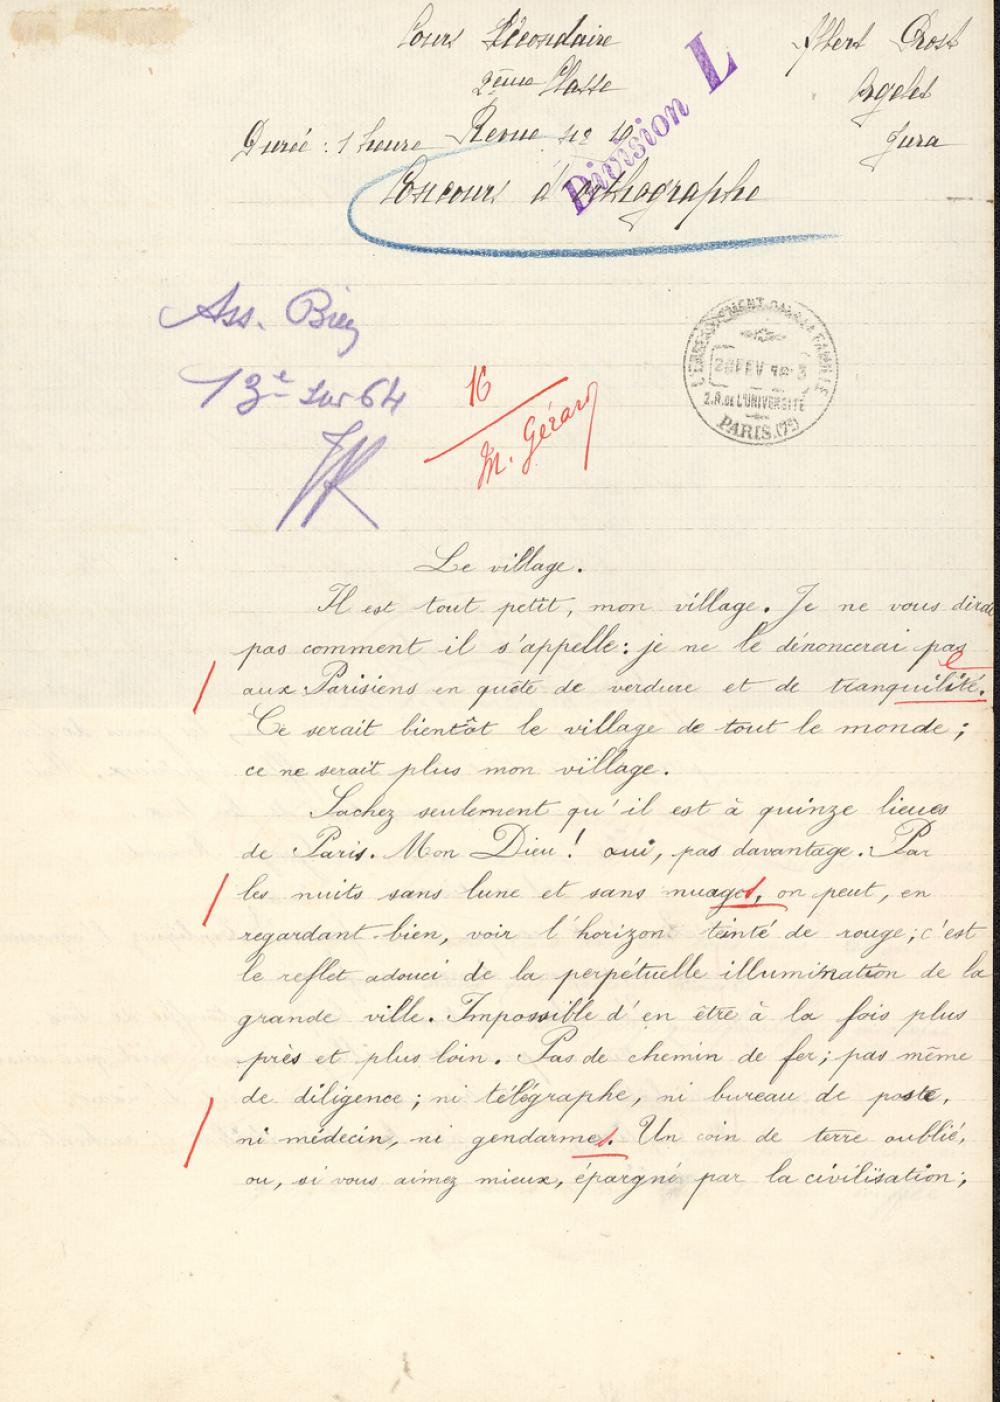 Cours Secondaire
2ème Classe
Albert Crost
Orgelet
Jura
Division L
Durée : 1 heure Revue no 10
Concours d'orthographe
Ass. Bien
13e sur 64
16
M. Gérard
L'ENSEIGNEMENT DANS LA FAMILLE
20 FEV
2.R. de L'UNIVERSITÉ
PARIS.(7e)
Le village.
Il est tout petit, mon village. Je ne vous dirai
pas comment il s'appelle : je ne le dénoncerai pas
aux Parisiens en quête de verdure et de tranquilité.
Ce serait bientôt le village de tout le monde ;
ce ne serait plus mon village.
Sachez seulement qu'il est à quinze lieues
de Paris. Mon Dieu ! oui, pas davantage. Par
les nuits sans lune et sans nuages, on peut, en
regardant bien, voir l'horizon teinté de rouge ; c'est
le reflet adouci de la perpétuelle illumination de la
grande ville. Impossible d'en être à la fois plus
près et plus loin. Pas de chemin de fer ; pas même
de diligence ; ni télégraphe, ni bureau de poste,
ni médecin, ni gendarmes. Un coin de terre oublié,
ou, si vous aimez mieux, épargné par la civilisation ;